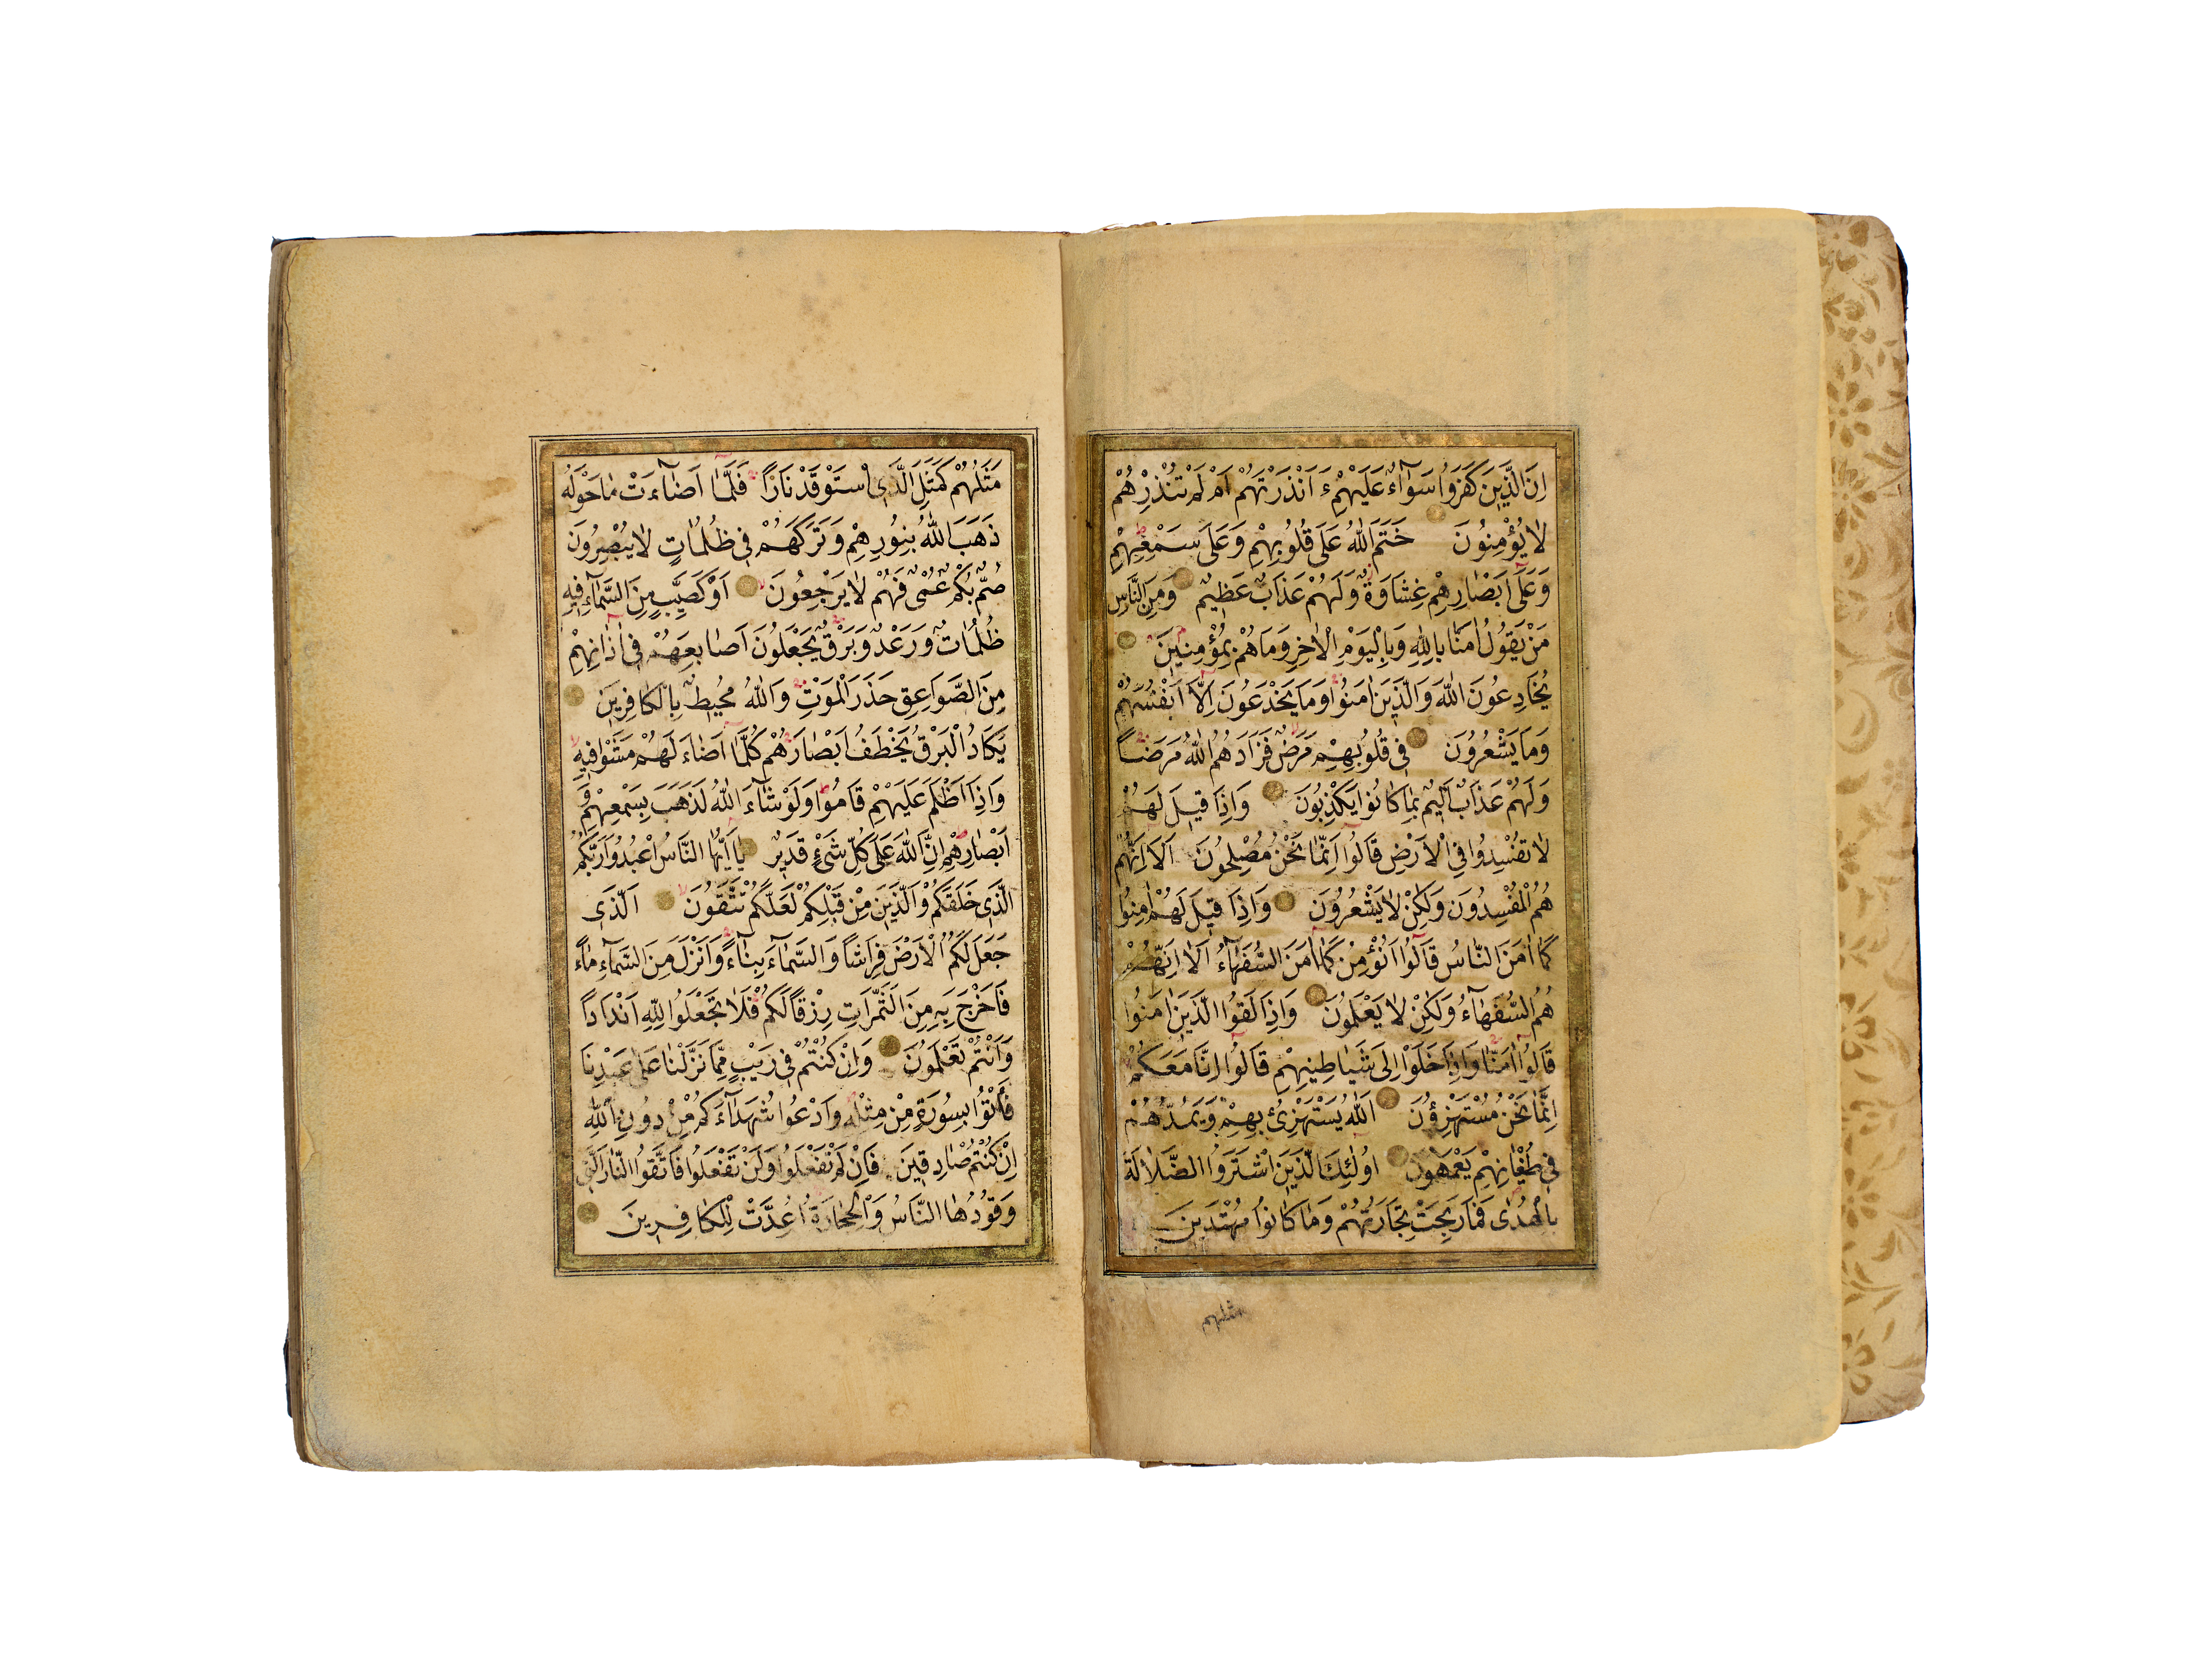 اِنَّ الَّذِينَ كَفَرُوا سَوَٓاءٌ عَلَيْهِمْ ءَاَنْذَرْتَهُمْ اَمْ لَمْ تُنْذِرْهُمْ
لَا يُؤْمِنُونَ خَتَمَ اللّٰهُ عَلٰى قُلُوبِهِمْ وَعَلٰى سَمْعِهِمْ
وَعَلٰٓى اَبْصَارِهِمْ غِشَاوَةٌ وَلَهُمْ عَذَابٌ عَظِيمٌ وَمِنَ النَّاسِ
مَنْ يَقُولُ اٰمَنَّا بِاللّٰهِ وَبِالْيَوْمِ الْاٰخِرِ وَمَا هُمْ بِمُؤْمِنِينَ
يُخَادِعُونَ اللّٰهَ وَالَّذِينَ اٰمَنُوا وَمَا يَخْدَعُونَ اِلَّٓا اَنْفُسَهُمْ
وَمَا يَشْعُرُونَ فِى قُلُوبِهِمْ مَرَضٌ فَزَادَهُمُ اللّٰهُ مَرَضًا
وَلَهُمْ عَذَابٌ اَلِيمٌ بِمَا كَانُوا يَكْذِبُونَ وَاِذَا قِيلَ لَهُمْ
لَا تُفْسِدُوا فِى الْاَرْضِ قَالُٓوا اِنَّمَا نَحْنُ مُصْلِحُونَ اَلَٓا اِنَّهُمْ
هُمُ الْمُفْسِدُونَ وَلٰكِنْ لَا يَشْعُرُونَ وَاِذَا قِيلَ لَهُمْ اٰمِنُوا
كَمَٓا اٰمَنَ النَّاسُ قَالُٓوا اَنُؤْمِنُ كَمَٓا اٰمَنَ السُّفَهَٓاءُ اَلَٓا اِنَّهُمْ
هُمُ السُّفَهَٓاءُ وَلٰكِنْ لَا يَعْلَمُونَ وَاِذَا لَقُوا الَّذِينَ اٰمَنُوا
قَالُٓوا اٰمَنَّا وَاِذَا خَلَوْا اِلٰى شَيَاطِينِهِمْ قَالُٓوا اِنَّا مَعَكُمْ
اِنَّمَا نَحْنُ مُسْتَهْزِؤُنَ اَللّٰهُ يَسْتَهْزِئُ بِهِمْ وَيَمُدُّهُمْ
فِى طُغْيَانِهِمْ يَعْمَهُونَ اُولٰٓئِكَ الَّذِينَ اشْتَرَوُا الضَّلَالَةَ
بِالْهُدٰى فَمَا رَبِحَتْ تِجَارَتُهُمْ وَمَا كَانُوا مُهْتَدِينَ
مثلهم
مَثَلُهُمْ كَمَثَلِ الَّذِى اسْتَوْقَدَ نَارًا فَلَمَّٓا اَضَٓاءَتْ مَا حَوْلَهُ
ذَهَبَ اللّٰهُ بِنُورِهِمْ وَتَرَكَهُمْ فِى ظُلُمَاتٍ لَا يُبْصِرُونَ
صُمٌّ بُكْمٌ عُمْىٌ فَهُمْ لَا يَرْجِعُونَ اَوْ كَصَيِّبٍ مِنَ السَّمَٓاءِ فِيهِ
ظُلُمَاتٌ وَرَعْدٌ وَبَرْقٌ يَجْعَلُونَ اَصَابِعَهُمْ فِٓى اٰذَانِهِمْ
مِنَ الصَّوَاعِقِ حَذَرَ الْمَوْتِ وَاللّٰهُ مُحِيطٌ بِالْكَافِرِينَ
يَكَادُ الْبَرْقُ يَخْطَفُ اَبْصَارَهُمْ كُلَّمَٓا اَضَٓاءَ لَهُمْ مَشَوْا فِيهِ
وَاِذَٓا اَظْلَمَ عَلَيْهِمْ قَامُوا وَلَوْ شَٓاءَ اللّٰهُ لَذَهَبَ بِسَمْعِهِمْ وَ
اَبْصَارِهِمْ اِنَّ اللّٰهَ عَلٰى كُلِّ شَىْءٍ قَدِيرٌ يَٓا اَيُّهَا النَّاسُ اعْبُدُوا رَبَّكُمُ
الَّذِى خَلَقَكُمْ وَالَّذِينَ مِنْ قَبْلِكُمْ لَعَلَّكُمْ تَتَّقُونَ اَلَّذِى
جَعَلَ لَكُمُ الْاَرْضَ فِرَاشًا وَالسَّمَٓاءَ بِنَٓاءً وَاَنْزَلَ مِنَ السَّمَٓاءِ مَٓاءً
فَاَخْرَجَ بِهِ مِنَ الثَّمَرَاتِ رِزْقًا لَكُمْ فَلَا تَجْعَلُوا لِلّٰهِ اَنْدَادًا
وَاَنْتُمْ تَعْلَمُونَ وَاِنْ كُنْتُمْ فِى رَيْبٍ مِمَّا نَزَّلْنَا عَلٰى عَبْدِنَا
فَأْتُوا بِسُورَةٍ مِنْ مِثْلِهِ وَادْعُوا شُهَدَٓاءَكُمْ مِنْ دُونِ اللّٰهِ
اِنْ كُنْتُمْ صَادِقِينَ فَاِنْ لَمْ تَفْعَلُوا وَلَنْ تَفْعَلُوا فَاتَّقُوا النَّارَ الَّتِى
وَقُودُهَا النَّاسُ وَالْحِجَارَةُ اُعِدَّتْ لِلْكَافِرِينَ